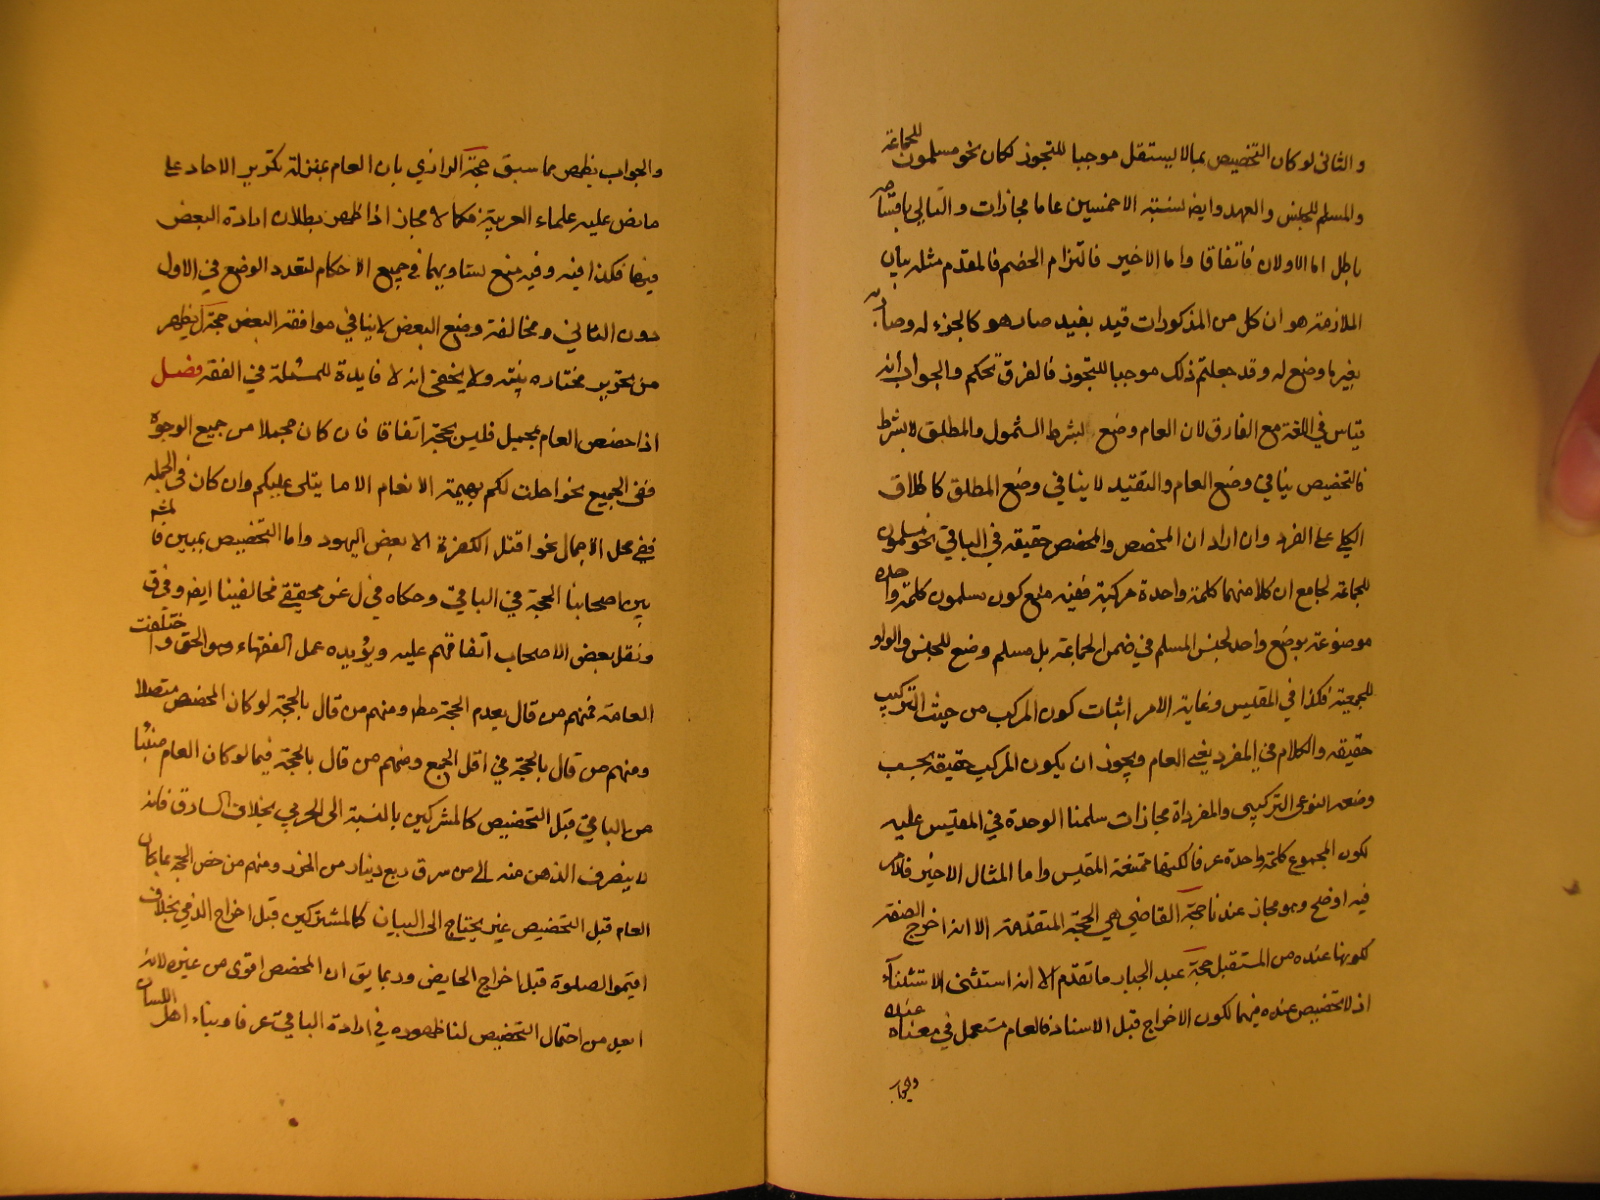 والثانى لو كان التخصيص بما لا يستقل موجبا للتجوز لكان نحو مسلمون للجماعة
والمسلم للجنس والعهد وايضا سنة الا خمسين عاما مجازات والتالى باقسامه
باطل اما الاولان فاتفاقا واما الاخير فالتزام الخصم فالمقدم مثله بيان
الملازمة هو ان كل من المذكورات قيد بقيد صار هو كالجزء له وصار به
بغير ما وضع له وقد جعلتم ذلك موجبا للتجوز فالفرق تحكم والجواب انه
قياس في اللغة مع الفارق لان العام وضع بشرط الشمول والمطلق لا بشرط
فالتخصيص ينافي وضع العام والتقييد لا ينافي وضع المطلق كاطلاق
الكلي على الفرد وان اراد ان المخصص والمخصص حقيقة في الباقي نحو مسلمون
للجماعة لجامع ان كلا منهما كلمة واحدة مركبة ففيه منع كون مسلمون كلمة واحدة
موضوعة بوضع واحد لجنس المسلم في ضمن الجماعة بل مسلم وضع للجنس والواو
للجمعية فكذا في المقيس وغاية الامر اثبات كون المركب من حيث التركيب
حقيقة والكلام في المفرد يعني العام ويجوز ان يكون المركب حقيقة بحسب
وضعه النوعى التركيبى والمفرداة مجازات سلمنا الوحدة في المقيس عليه
لكون المجموع كلمة واحدة عرفا لكنها ممتنعة المقيس واما المثال الاخير فالامر
فيه اوضح وهو مجاز عندنا حجة القاضي هي الحجة المتقدمة الا انه اخرج الصفة
لكونها عنده من المستقبل حجة عبد الجبار ما تقدم الا انه استثنى الاستثناء
اذ لا تخصيص عنده فيهما لكون الاخراج قبل الاسناد فالعام مستعمل في معناه عنده
والجواب
والجواب يظهر مما سبق حجة الرازي بان العام بمنزلة تكرير الاحاد على
ما نص عليه علماء العربية فكما لا مجاز اذا ظهر بطلان ارادة البعض
فيها فكذا فيه وفيه منع تساويهما في جميع الاحكام لتعدد الوضع في الاول
دون الثاني ومخالفة وضع البعض لا ينافي موافقة البعض حجة كل يظهر
من تحرير مختاره بينة ولا يخفى انه لا فايدة للمسئلة في الفقه فصل
اذا خصص العام بمجمل فليس بحجة اتفاقا فان كان مجملا من جميع الوجوه
ففي الجميع نحو احلت لكم بهيمة الانعام الا ما يتلى عليكم وان كان في الجملة
ففي محل الاجمال نحو اقتل الكفرة الا بعض اليهود واما التخصيص بمبين فا
بين اصحابنا الحجة في الباقي وحكاه في ل عن محققي مخالفينا ايض وفرق
ونقل بعض الاصحاب اتفاقهم عليه ويؤيده عمل الفقهاء وهو الحق واختلفت
العامة فمنهم من قال بعدم الحجة مط ومنهم من قال بالحجة لو كان المخصص متصلا
ومنهم من قال بالحجة في اقل الجمع ومنهم من قال بالحجة فيما لو كان العام منبئا
عن الباقي قبل التخصيص كالمشركين بالنسبة الى الحربي بخلاف السارق فانه
لا ينصرف الذهن منه الى من سرق ربع دينار من الحرز ومنهم من خص الحجة بما كان
العام قبل التخصيص غير يحتاج الى البيان كالمشركين قبل اخراج الذمي بخلاف
اقيموا الصلوة قبل اخراج الحايض وربما يق ان المخصص اقوى من غيره لانه
ابعد من احتمال التخصيص لنا ظهوره في ارادة الباقي عرفا وبناء اهل اللسان